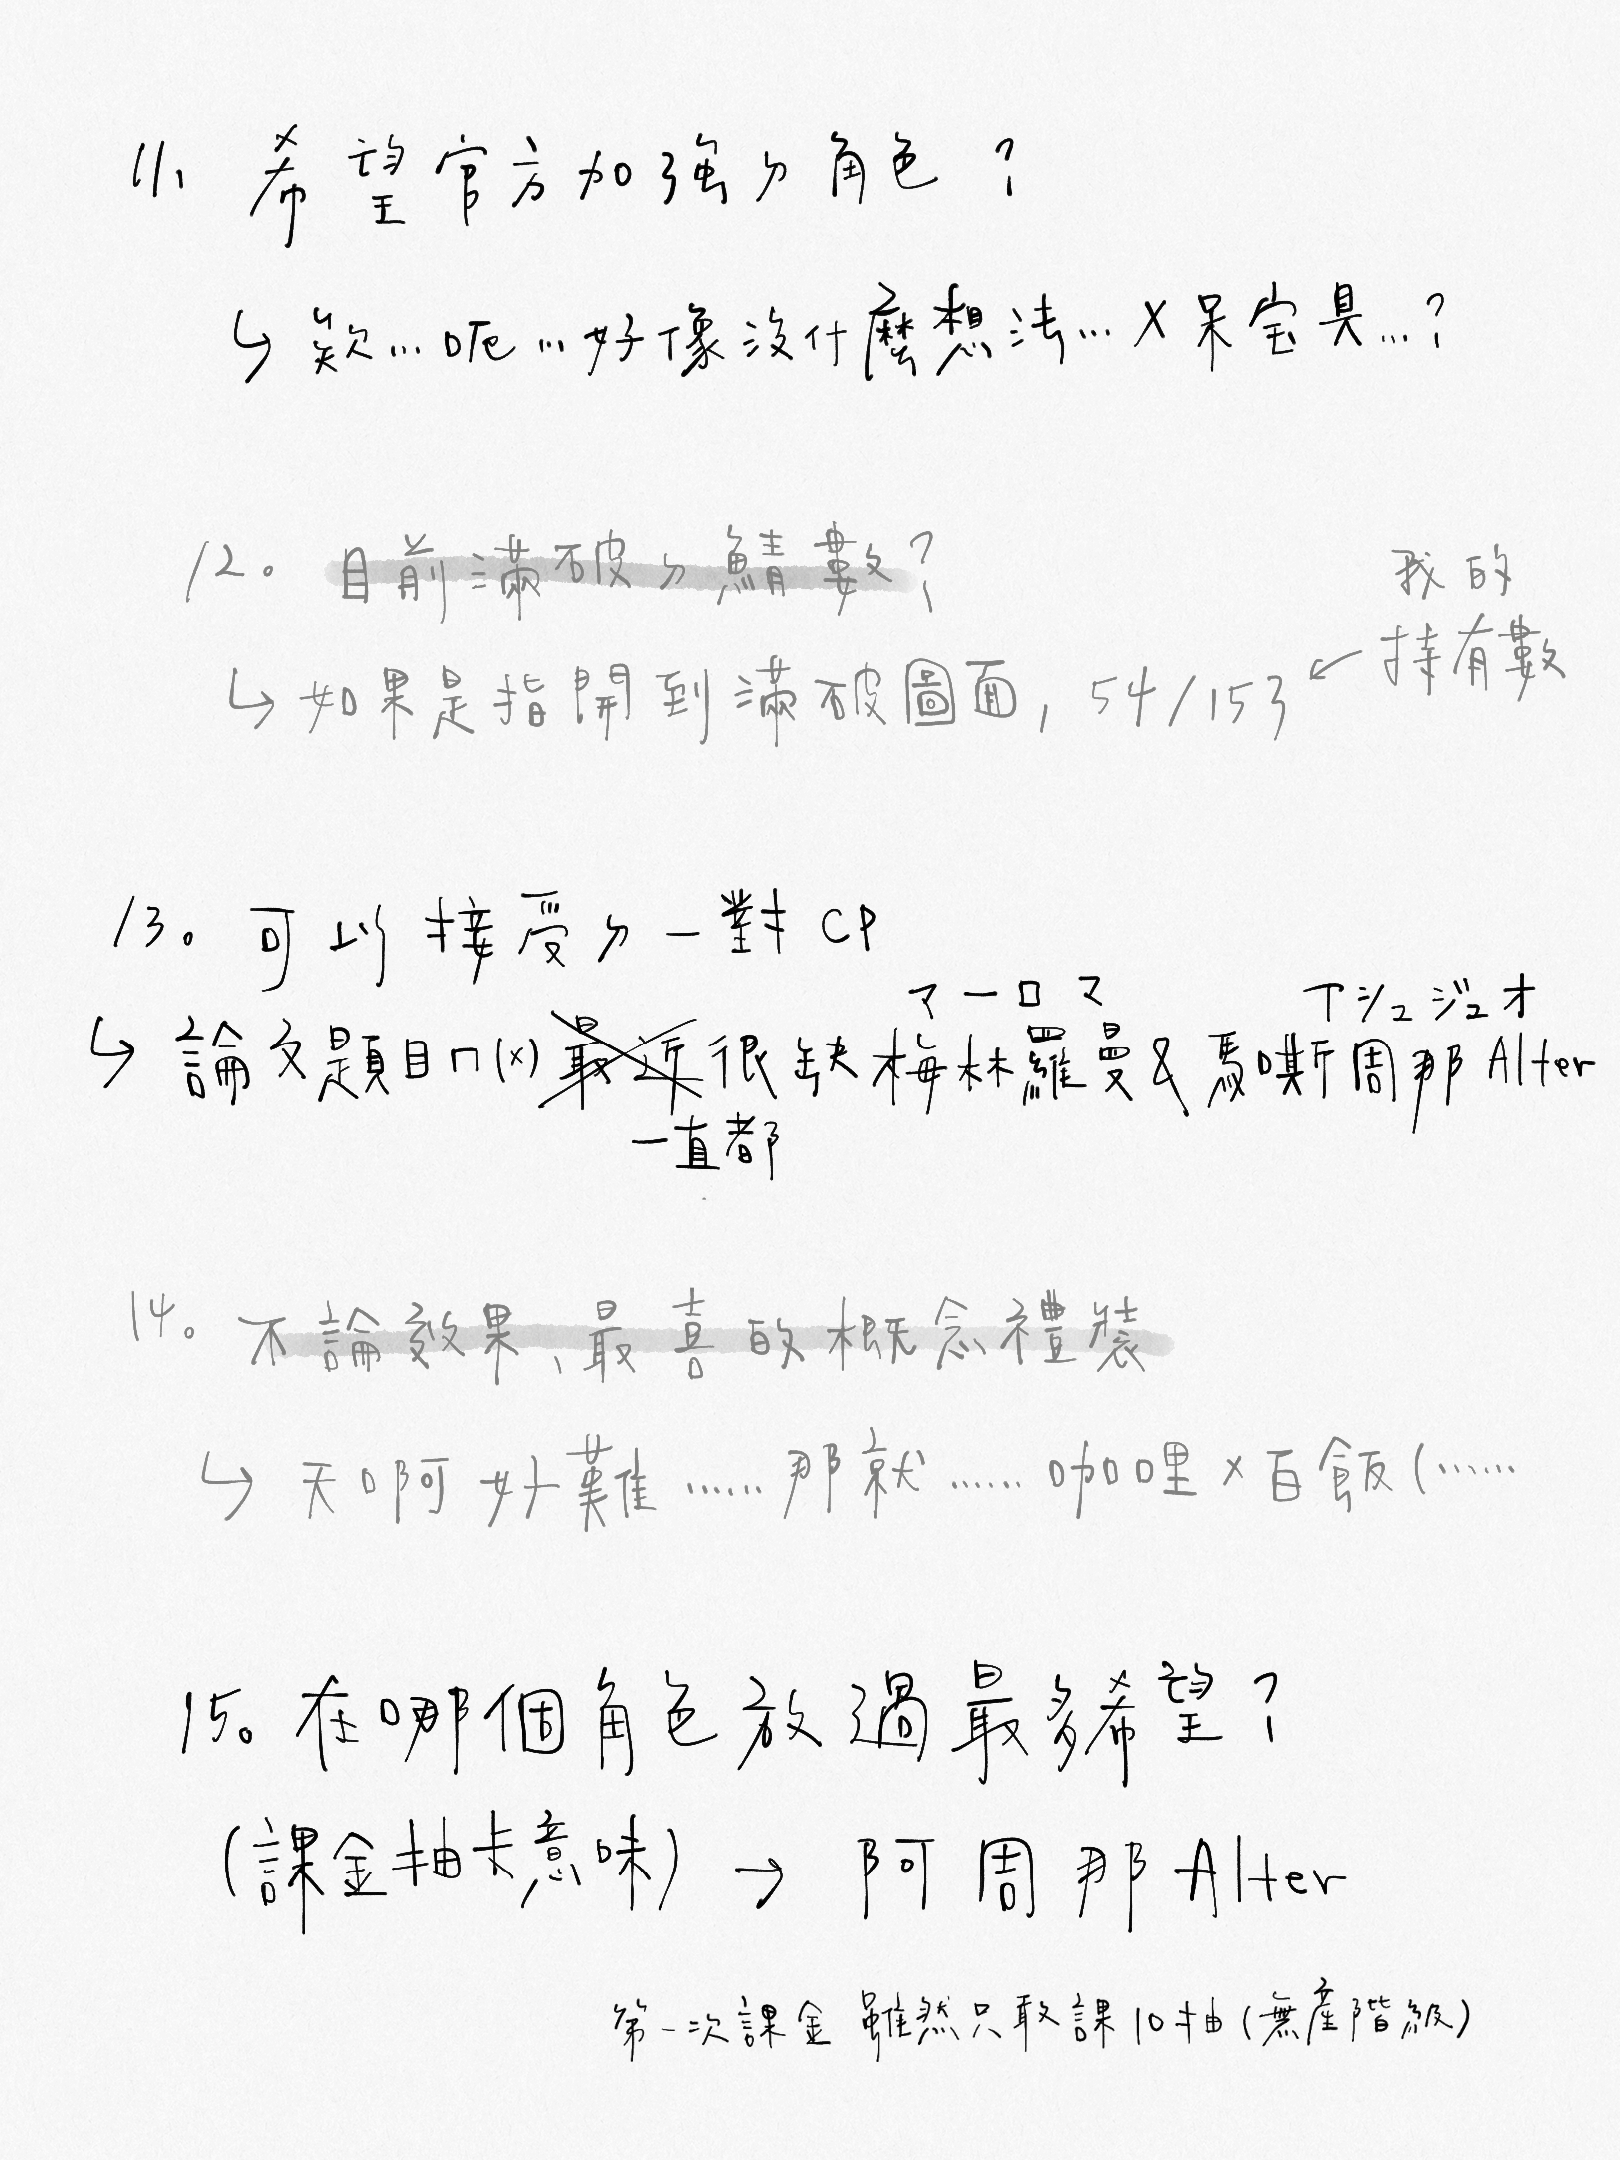 11、希望官方加強ㄉ角色？
↳欸…呃…好像沒什麼想法…X呆宝具…？
12。目前滿破ㄉ鯖數？
↳如果是指開到滿破圖面，54/153 ← 我的
持有數
13。可以接受ㄉ一對CP
マーロマ アシュジュオ
↳論文題目ㄇ(x) 最近很缺梅林羅曼&馬嘶周那Alter
一直都
14。不論效果、最喜的概念禮裝
↳天啊好難……那就……咖哩×百飯(……
15。在哪個角色放過最多希望？
(課金抽卡意味) → 阿周那Alter
第一次課金 雖然只敢課10抽(無產階級)